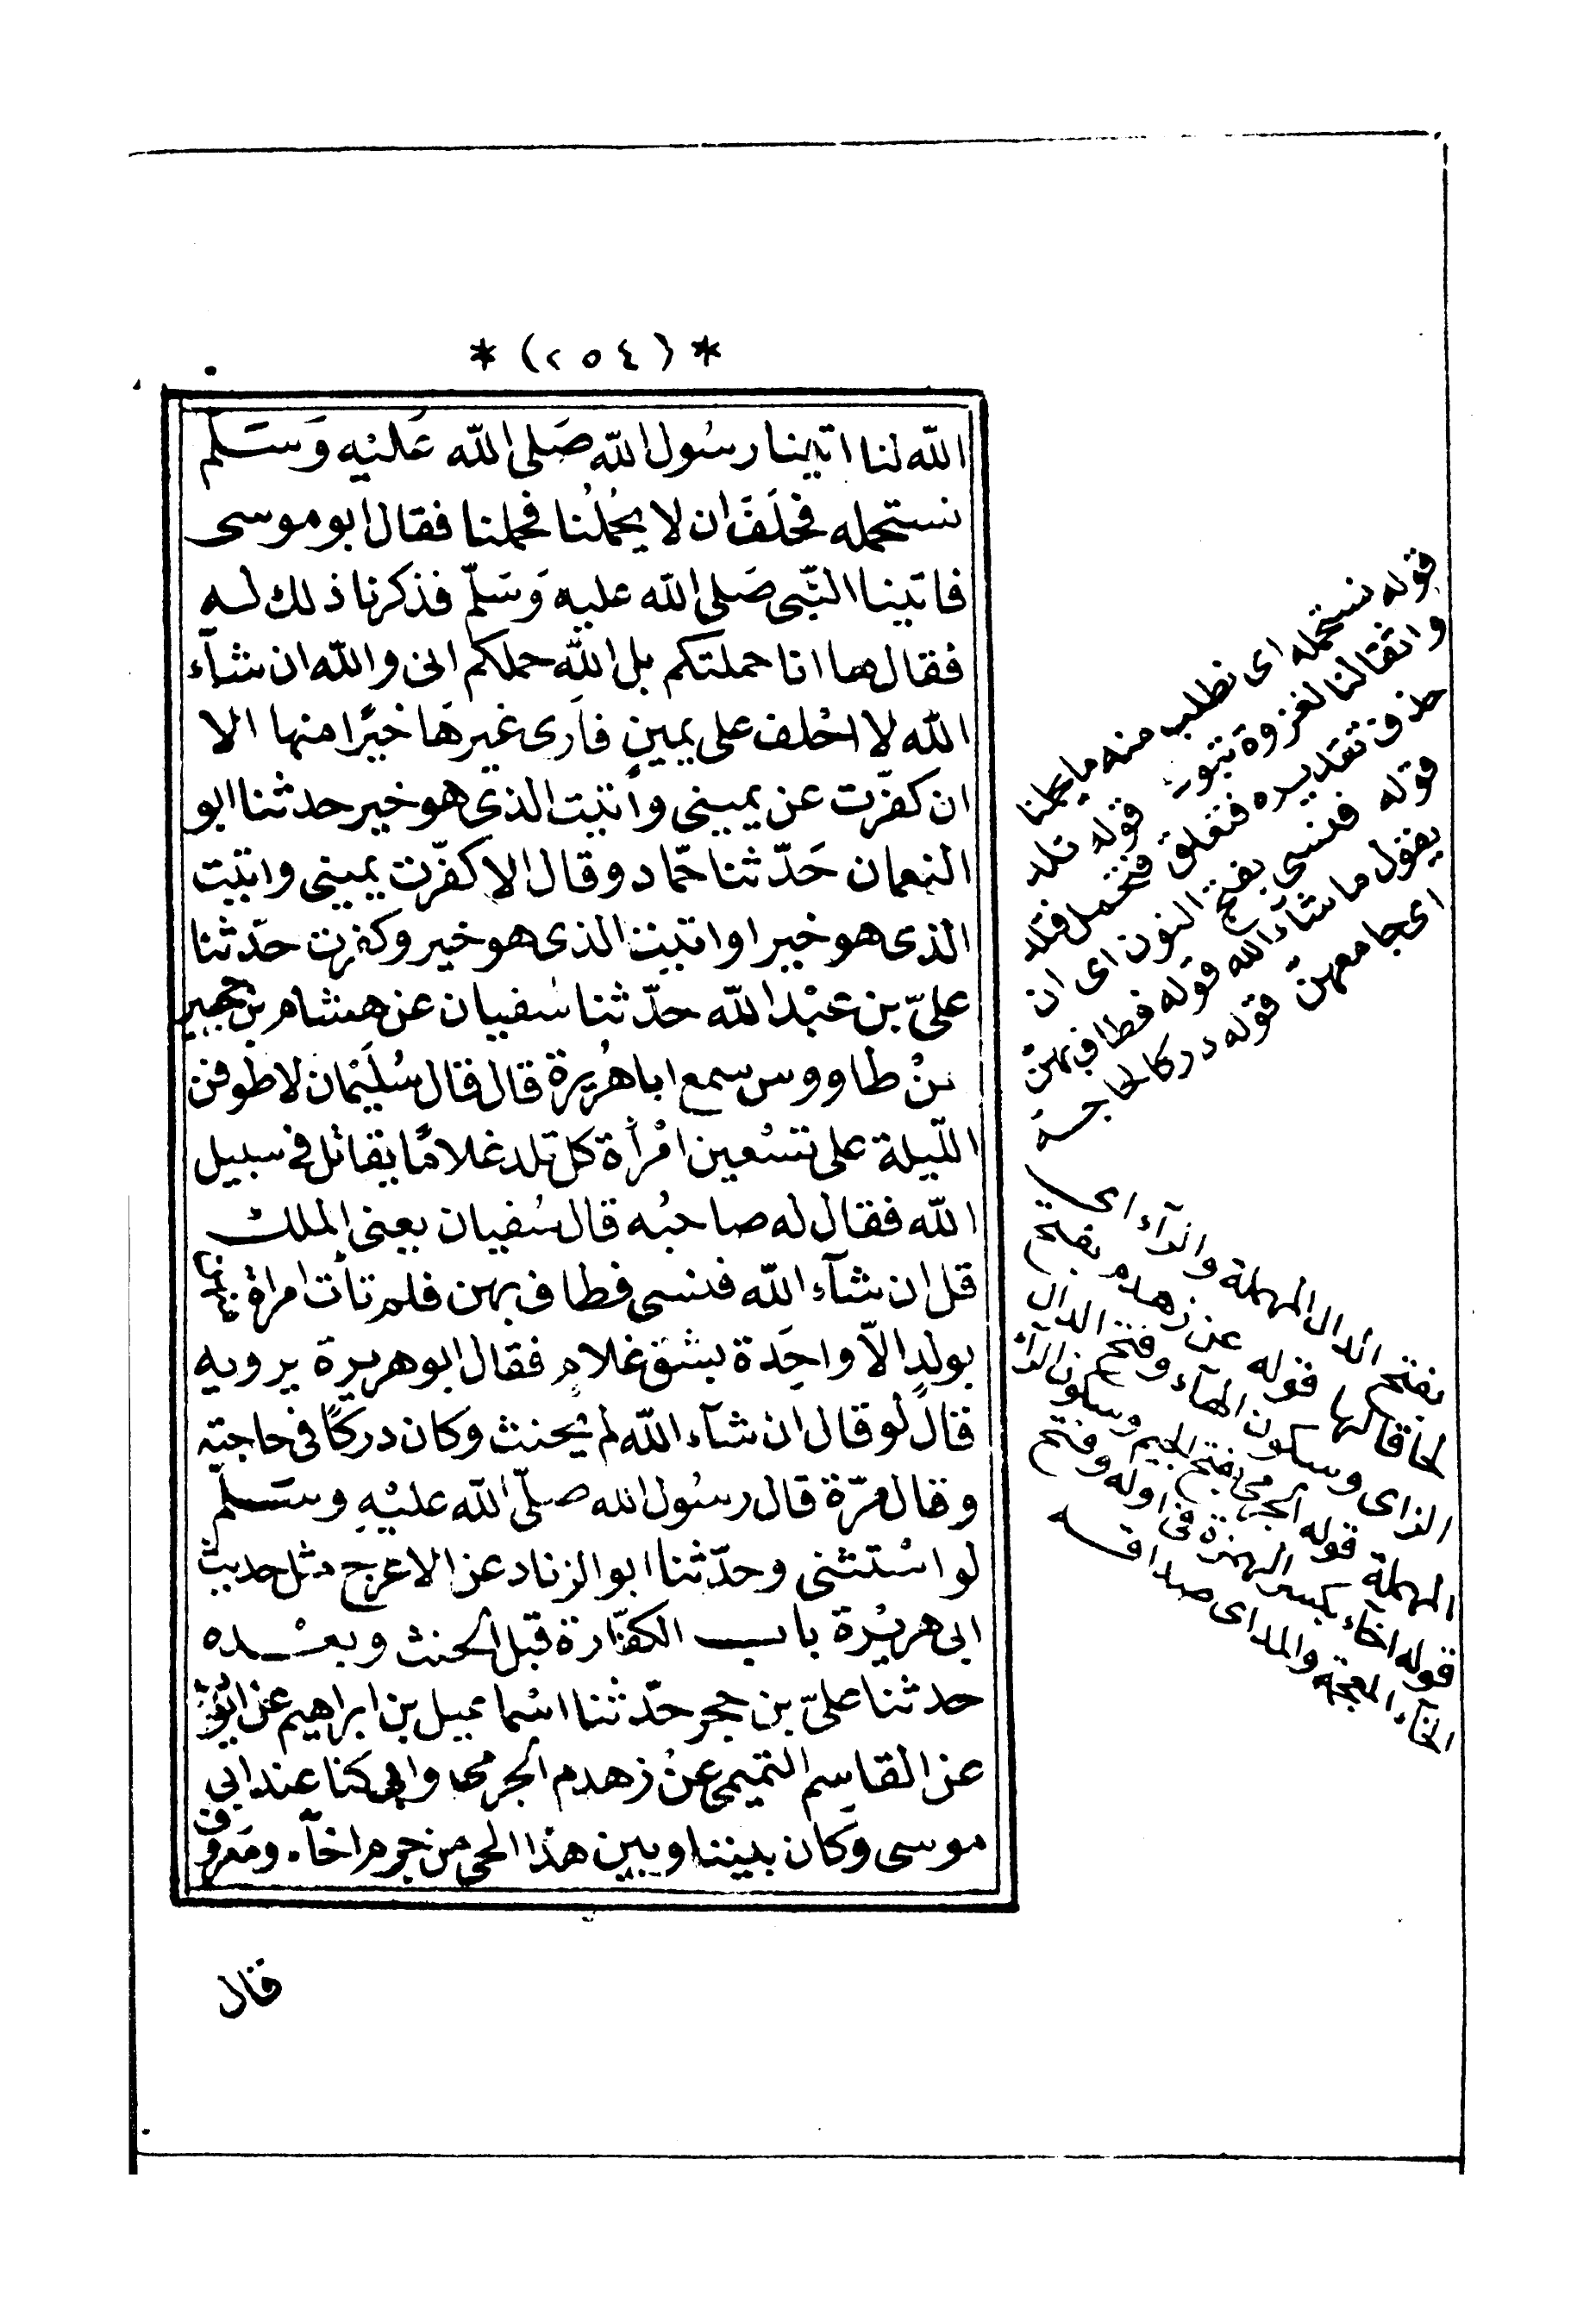 * (٢٥٤) *
الله لنا اتينا رسُول الله صَلى الله عَليْه وَسَلّم
نستحمله فحلَفَ ان لا يحُملُنا فحملنا فقال ابو موسى
فاتينا النّبى صَلى الله عليه وَسَلّم فذكرنا ذلك له
فقال ما انا حملتكم بل الله حملكم انى والله ان شآء
الله لا احُلف على يمينٍ فاَرى غيرهَا خيرًا منها الا
ان كفّرت عن يمينى وأتيت الذى هو خير حدثنا ابو
النعمان حَدّثنا حمّاد وقال الا كفّرت يمينى واتيت
الذى هو خير او اتيت الذى هو خير وكفرت حدّثنا
علىّ بن عبْد الله حدّثنا سُفيان عن هشام بن حجير
عنْ طاووس سمع ابا هُريرة قال قال سُليَمْان لاطوفن
اللّيلة على تسْعين امْرأة كل تلد غلامًا يقاتل فى سبيل
الله فقال له صاحبُه قال سُفيان يعنى الملك
قل ان شآء الله فنسى فطاف بهن فلم تأت امراة منهن
بولدٍ الاّ واحِدة بشق غلامٍ فقال ابو هريرة يرويه
قال لو قال ان شآء الله لم يَحنث وكان دركًا فى حاجته
وقال مرّة قال رسُول الله صلّى الله عليْهِ وسَلّم
لو اسْتثنى وحدّثنا ابو الزناد عن الاعرج مثل حديث
ابى هريْرة باب الكفّارة قبل الحنث وبعْده
حدثنا علىّ بن حجر حدّثنا اسْماعيل بن ابراهيم عن ايّوب
عن القاسِم التميمى عنْ زهدم الجرمى قال كنا عند ابى
موسى وَكان بيننا وبين هذا الحى من جرم اخآء ومَعروف
قال
قوله نستحمله اى نطلب منه ما يحملنا
واثقالنا لغزوة تبوك قوله تلد
حذف تقديره فتعلق فتحمل فتلد
قوله فنسى بفتح النون اى ان
يقول ما شآء الله قوله فطاف بهنّ
اى جامعهنّ قوله دركا لحاجته
بفتح الدال المهملة والرآء اى
لحاقا لها قوله عن زهدم بفتح
الزاى وسكون الهآء وفتح الدال
المهملة قوله الجرمى بفتح الجيم وسكون الرآء
قوله اخآء بكسر الهمزة فى اوله وفتح
الخآء المعجمة والمد اى صداقة